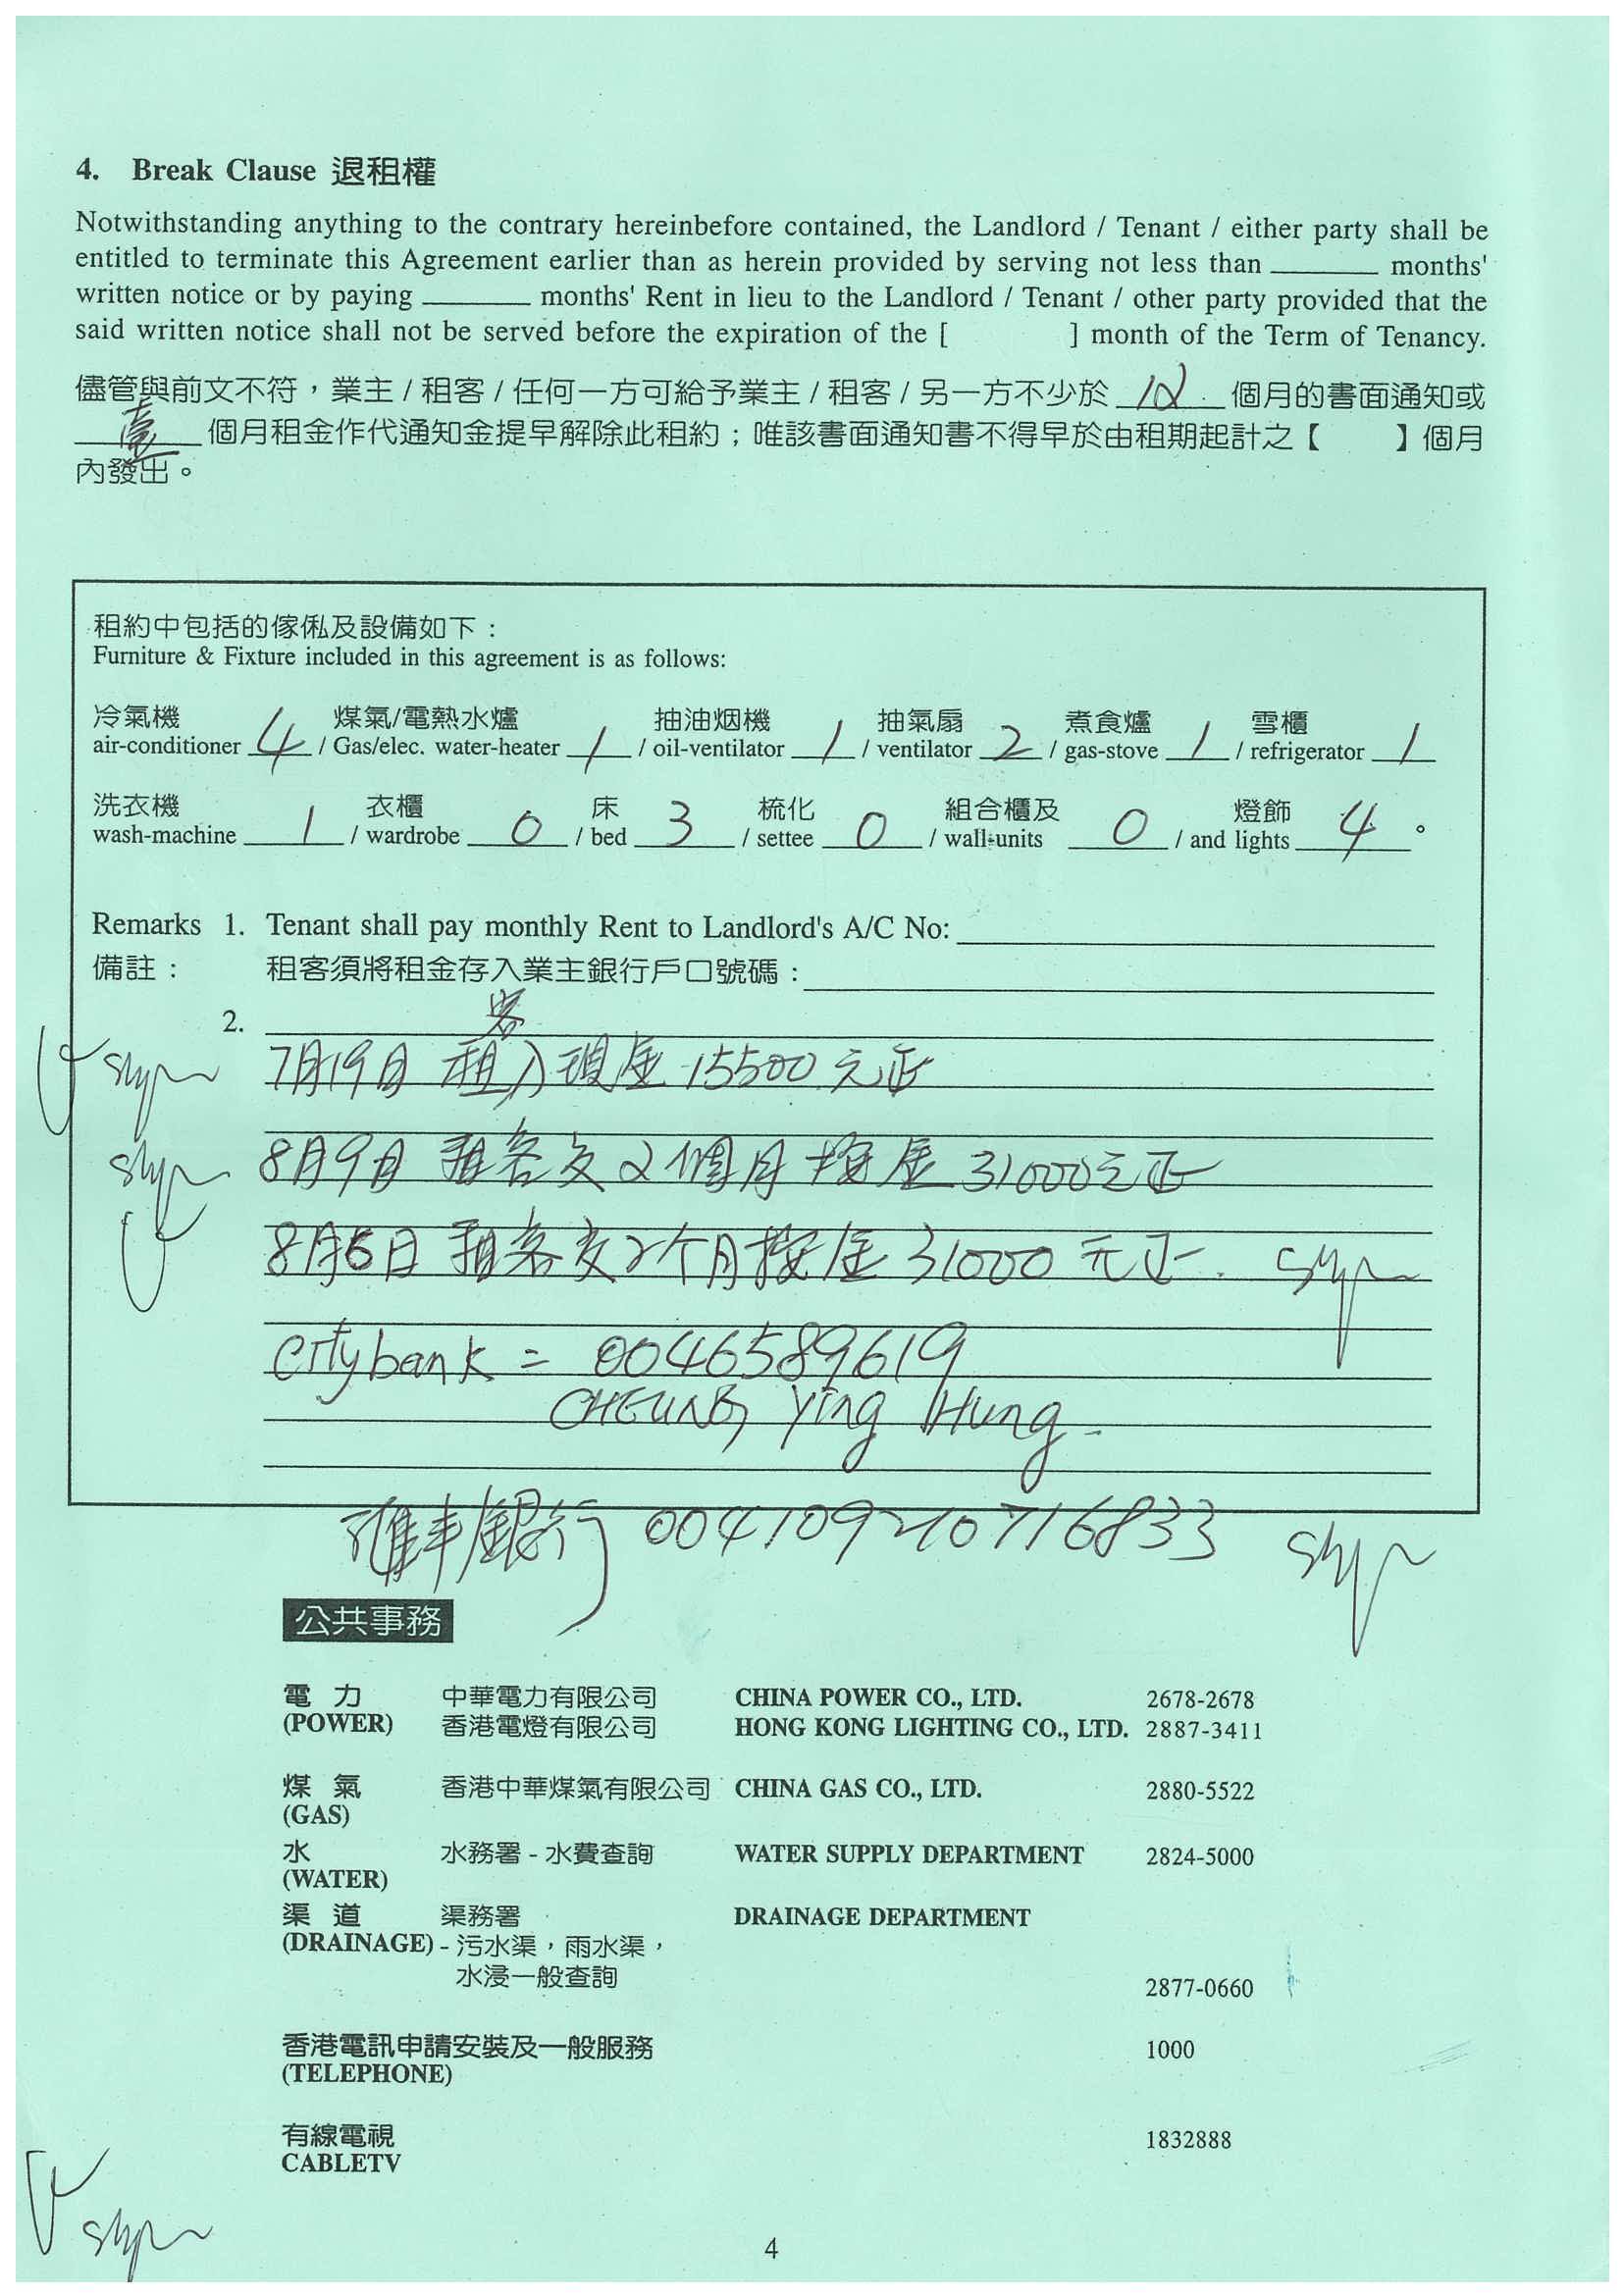 4. Break Clause 退租權
Notwithstanding anything to the contrary hereinbefore contained, the Landlord / Tenant / either party shall be
entitled to terminate this Agreement earlier than as herein provided by serving not less than ______ months'
written notice or by paying ______ months' Rent in lieu to the Landlord / Tenant / other party provided that the
said written notice shall not be served before the expiration of the [ ] month of the Term of Tenancy.
儘管與前文不符，業主 / 租客 / 任何一方可給予業主 / 租客 / 另一方不少於 12 個月的書面通知或
壹 個月租金作代通知金提早解除此租約；唯該書面通知書不得早於由租期起計之【 】個月
內發出。
租約中包括的傢俬及設備如下：
Furniture & Fixture included in this agreement is as follows:
冷氣機 煤氣/電熱水爐 抽油烟機 抽氣扇 煮食爐 雪櫃
air-conditioner 4 / Gas/elec. water-heater 1 / oil-ventilator 1 / ventilator 2 / gas-stove 1 / refrigerator 1
洗衣機 衣櫃 床 梳化 組合櫃及 燈飾
wash-machine 1 / wardrobe 0 / bed 3 / settee 0 / wall-units 0 / and lights 4 。
Remarks 1. Tenant shall pay monthly Rent to Landlord's A/C No:
備註： 租客須將租金存入業主銀行戶口號碼：
2.
7月19日 租客入現金 15500 元正
8月9日 租客交2個月按金 31000元正
8月6日 租客交2个月按金 31000 元正.
Citybank = 0046589619
CHEUNG Ying Hung.
匯丰銀行 004109210716833
公共事務
電 力 中華電力有限公司 CHINA POWER CO., LTD. 2678-2678
(POWER) 香港電燈有限公司 HONG KONG LIGHTING CO., LTD. 2887-3411
煤 氣 香港中華煤氣有限公司 CHINA GAS CO., LTD. 2880-5522
(GAS)
水 水務署 - 水費查詢 WATER SUPPLY DEPARTMENT 2824-5000
(WATER)
渠 道 渠務署 DRAINAGE DEPARTMENT
(DRAINAGE) - 污水渠，雨水渠，
水浸一般查詢 2877-0660
香港電訊申請安裝及一般服務 1000
(TELEPHONE)
有線電視 1832888
CABLETV
4